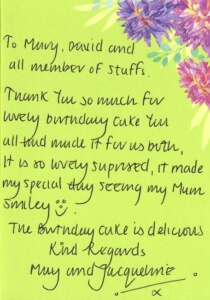 To Mary, David and
all member of stuffs.
Thank You so much for
lovely birthday cake You
all had made it for us both,
It is so lovely suprised, it made
my special day seeing my Mum
smiley ☺.
The Birthday cake is delicious
Kind Regards
May and Jacqueline
x